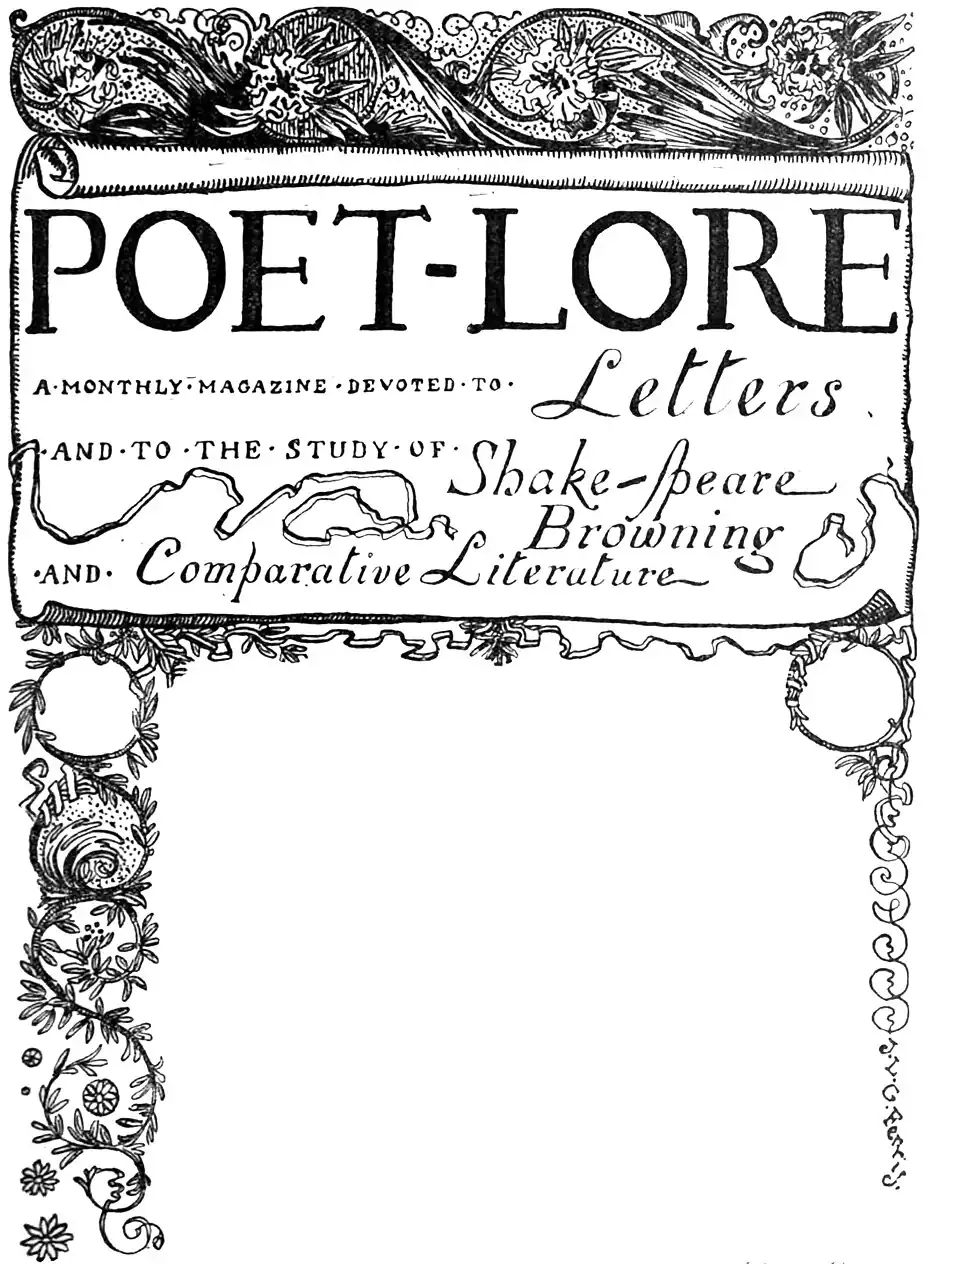 POET-LORE
A·MONTHLY·MAGAZINE·DEVOTED·TO· Letters
·AND·TO·THE·STUDY·OF· Shake-speare
Browning
·AND· Comparative Literature
J.L.G. Ferris.